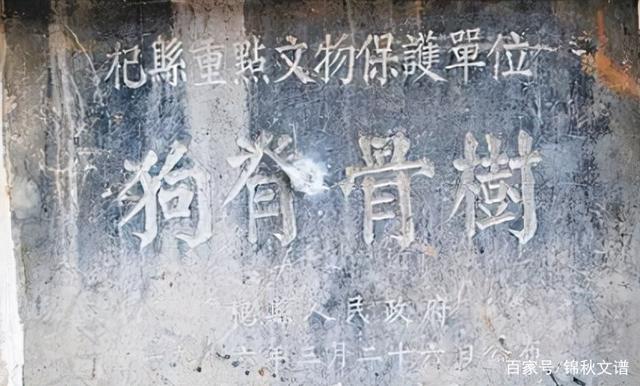 杞縣重點文物保護單位
狗脊骨樹
杞縣人民政府
一九八六年三月二十六日公
百家号/锦秋文谱